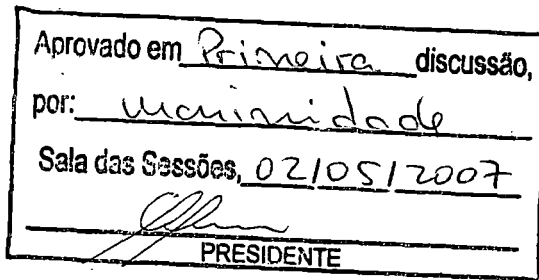 Aprovado em Primeira discussão,
por: unanimidade
Sala das Sessões, 02/05/2007
PRESIDENTE